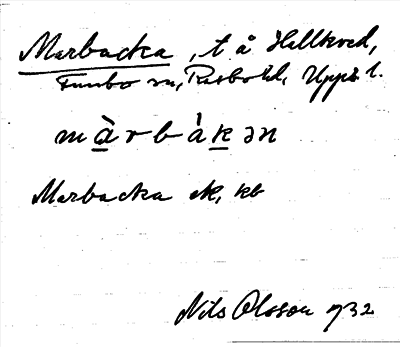 Marbacka, t å Hällkved,
Funbo sn, Rasbo hd, Upps. l.
màrbákən
Marbacka ek, kb
Nils Olsson 1932